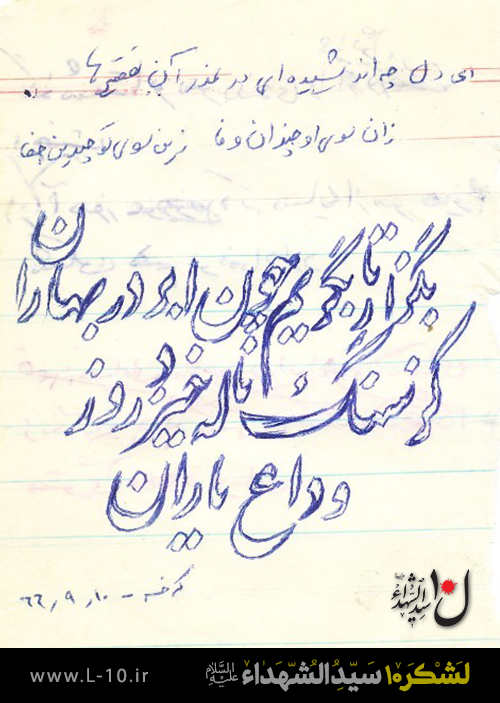 ای دل چه اندیشیده‌ای در عذر آن تقصیرها
زان سوی او چندان وفا زین سوی تو چندین جفا
بگذار تا بگریم چون ابر در بهاران
کز سنگ ناله خیزد روز
وداع یاران
۶۶٫۹٫۱۰
لشکر ۱۰ سیدالشهداء
ل۱۰ سیدالشهداء
www.L-10.ir
لَشْکَر۱۰ سَیِّدُالشُّهَداء عَلَیهِ السَّلام